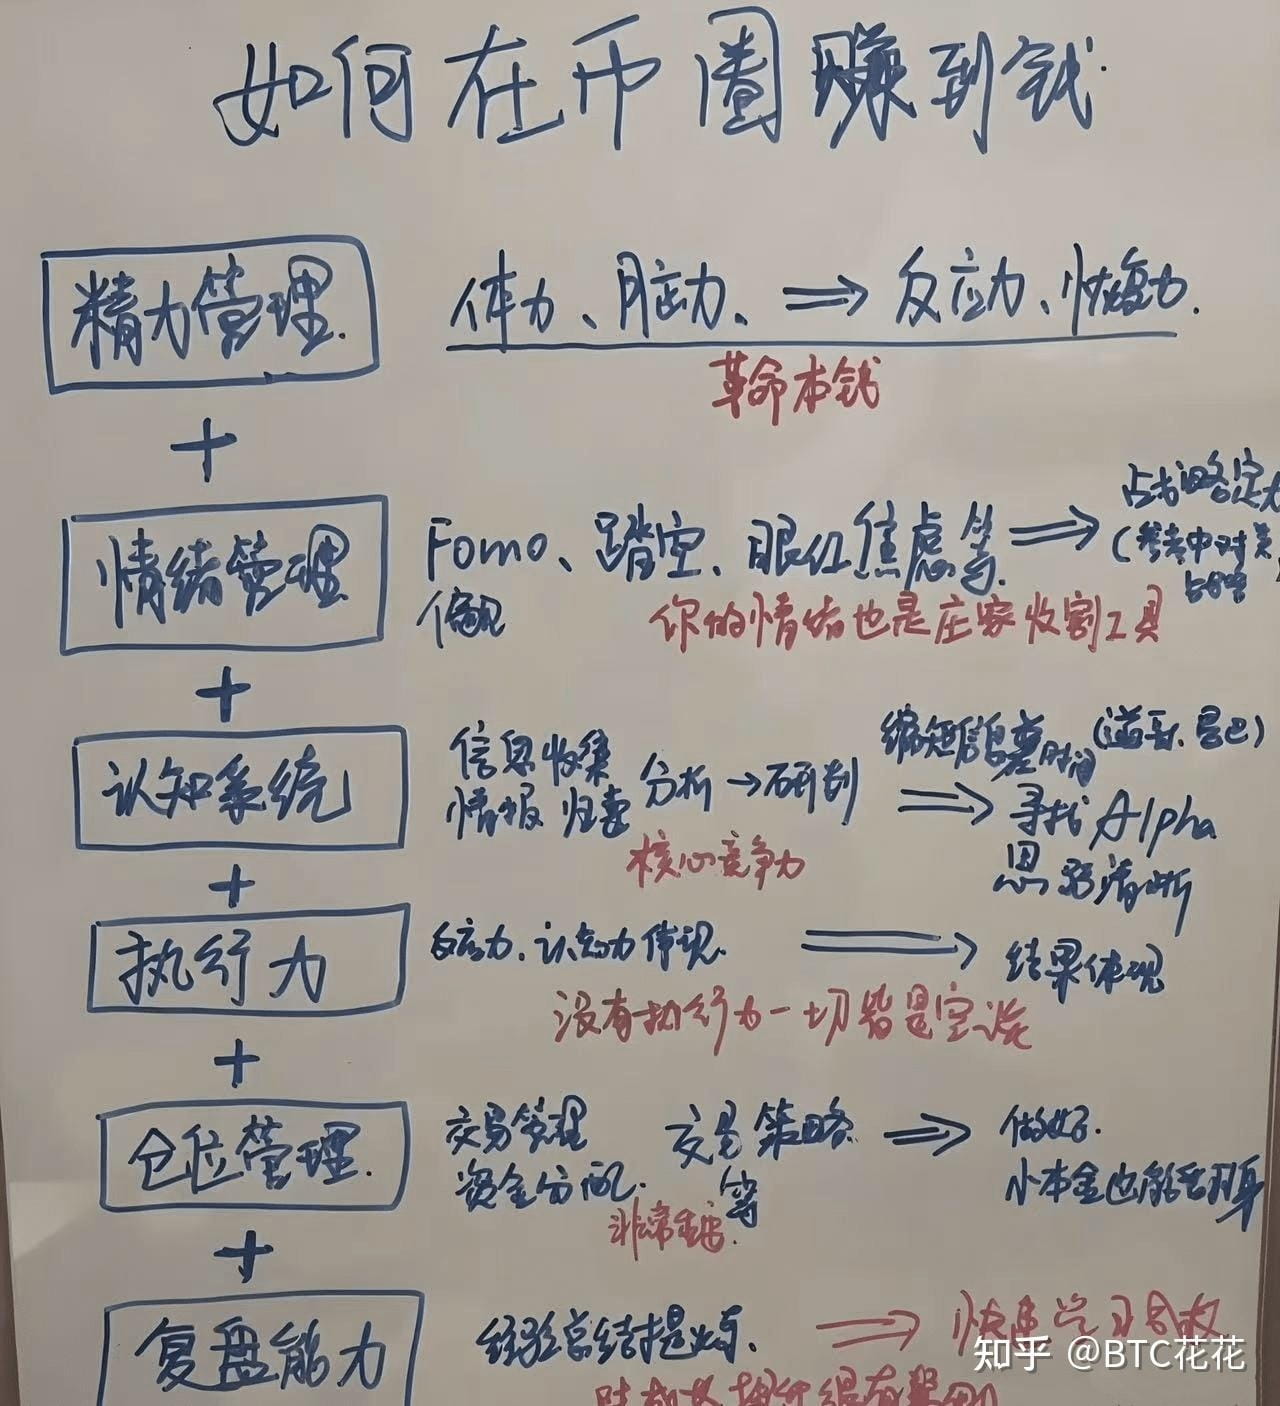 如何在币圈赚到钱.
精力管理.
体力、脑力、⇒反应力、恢复力.
革命本钱
+
情绪管理
Fomo、踏空、眼红焦虑等.⇒
偏见
你的情绪也是庄家收割工具
+
认知系统
信息收集
情报 归类 分析→研判 ⇒
核心竞争力
缩短信息差时间
寻找Alpha
思路清晰
+
执行力
反应力.认知力体现. ⇒ 结果体现
没有执行力一切皆是空谈
+
仓位管理.
交易管理 交易策略 ⇒ 做好.
资金分配. 等 小本金也能活到身
非常重要.
+
复盘能力
经验总结提炼. ⇒ 快速学习
知乎 @BTC花花